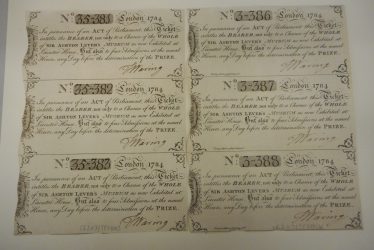 No. 35·381 London, 1784
In pursuance of an ACT of Parliament, this Ticket
entitles the BEARER not only to a Chance of the WHOLE
of SIR ASHTON LEVERS MUSEUM as now Exhibited at
Leicester House, But also to free Admissions at the usual
Hours, any Day before the determination of the PRIZE.
JWaring
No. 35·382 London, 1784
In pursuance of an ACT of Parliament, this Ticket
entitles the BEARER not only to a Chance of the WHOLE
of SIR ASHTON LEVERS MUSEUM as now Exhibited at
Leicester House, But also to free Admissions at the usual
Hours, any Day before the determination of the PRIZE.
JWaring
No. 35·383 London, 1784
In pursuance of an ACT of Parliament, this Ticket
entitles the BEARER not only to a Chance of the WHOLE
of SIR ASHTON LEVERS MUSEUM as now Exhibited at
Leicester House, But also to free Admissions at the usual
Hours, any Day before the determination of the PRIZE.
JWaring
No. 3·386 London, 1784
In pursuance of an ACT of Parliament, this Ticket
entitles the BEARER not only to a Chance of the WHOLE
of SIR ASHTON LEVERS MUSEUM as now Exhibited at
Leicester House, But also to free Admissions at the usual
Hours, any Day before the determination of the PRIZE.
JWaring
No. 3·387 London, 1784
In pursuance of an ACT of Parliament, this Ticket
entitles the BEARER not only to a Chance of the WHOLE
of SIR ASHTON LEVERS MUSEUM as now Exhibited at
Leicester House, But also to free Admissions at the usual
Hours, any Day before the determination of the PRIZE.
JWaring
No. 3·388 London, 1784
In pursuance of an ACT of Parliament, this Ticket
entitles the BEARER not only to a Chance of the WHOLE
of SIR ASHTON LEVERS MUSEUM as now Exhibited at
Leicester House, But also to free Admissions at the usual
Hours, any Day before the determination of the PRIZE.
JWaring